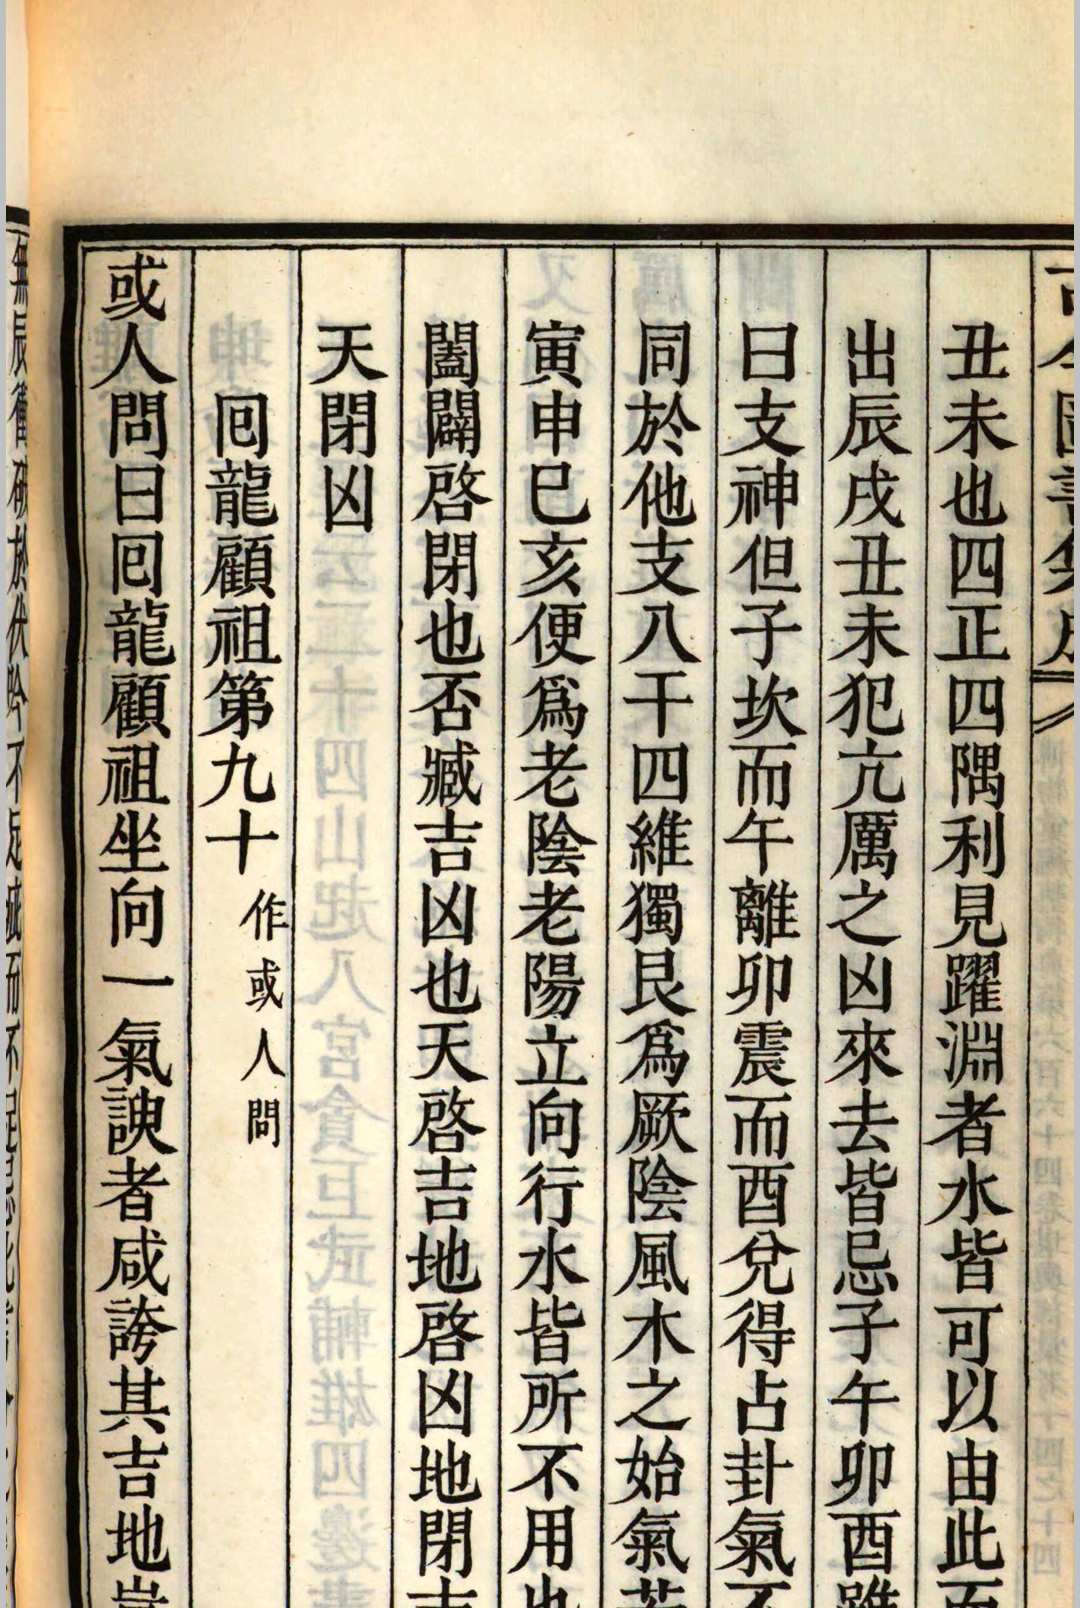 古今圖書集成
丑未也四正四隅利見躍淵者水皆可以由此而
出辰戌丑未犯亢厲之凶來去皆忌子午卯酉雖
曰支神但子坎而午離卯震而酉兌得占卦氣不
同於他支八干四維獨艮爲厥陰風木之始氣若
寅申巳亥便爲老陰老陽立向行水皆所不用也
闔闢啓閉也否臧吉凶也天啓吉地啓凶地閉吉
天閉凶
回龍顧祖第九十 作或人問
或人問曰回龍顧祖坐向一氣諛者咸誇其吉地豈